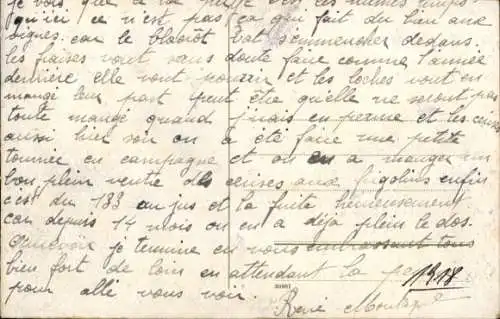 je vois, que à la
qu'ici ce n'est pas ça qui fait du bien aux
vignes. car le blabrôt bat s'emmencher dedans.
les fraises vont sans doute faire comme l'année
dernière elle vont pourrir et les loches vont en
mangé leur part peut être qu'elle ne seront pas
toute mangé quand j'irais en perme et les
aussi hier soir on a été faire une petite
tourner en campagne et on en a manger un
bon plein ventre des cerises aux bigolins enfin
c'est du 133 au jus et la fuite heureusement
car depuis 14 mois on en a déja plein le dos.
je termine en vous embrassant tous
bien fort de loin en attendant la
pour allé vous voir.
1918
René